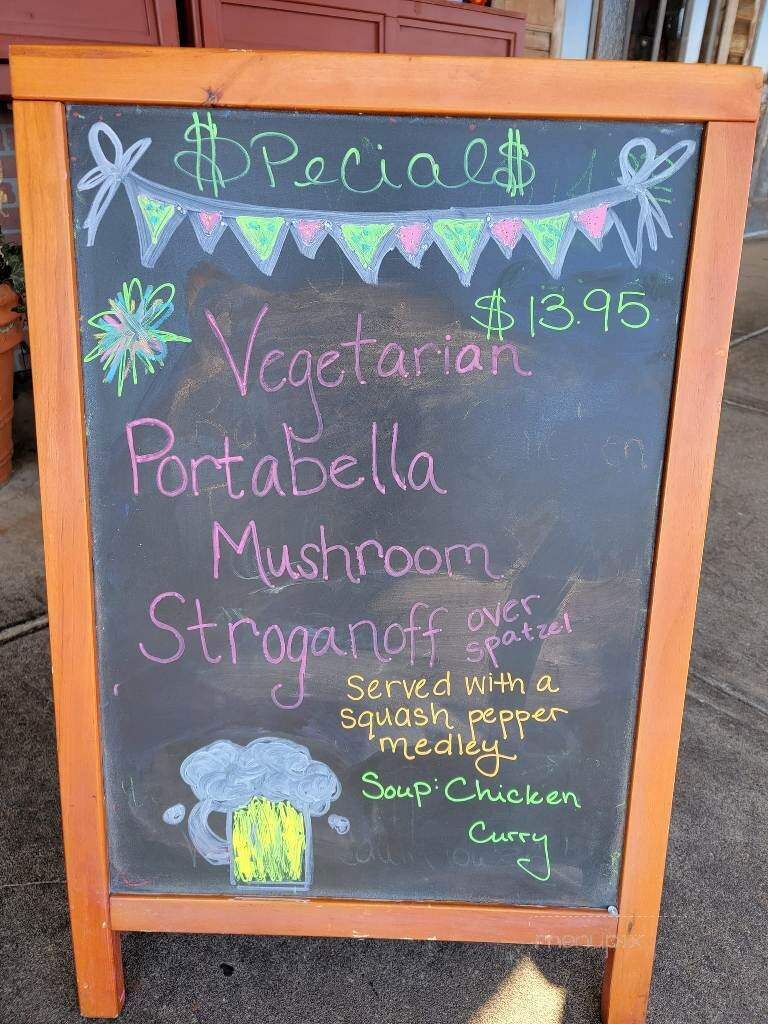 $Pecial$
$13.95
Vegetarian
Portabella
Mushroom
Stroganoff over
spatzel
Served with a
squash pepper
medley
Soup: Chicken
Curry
menupix